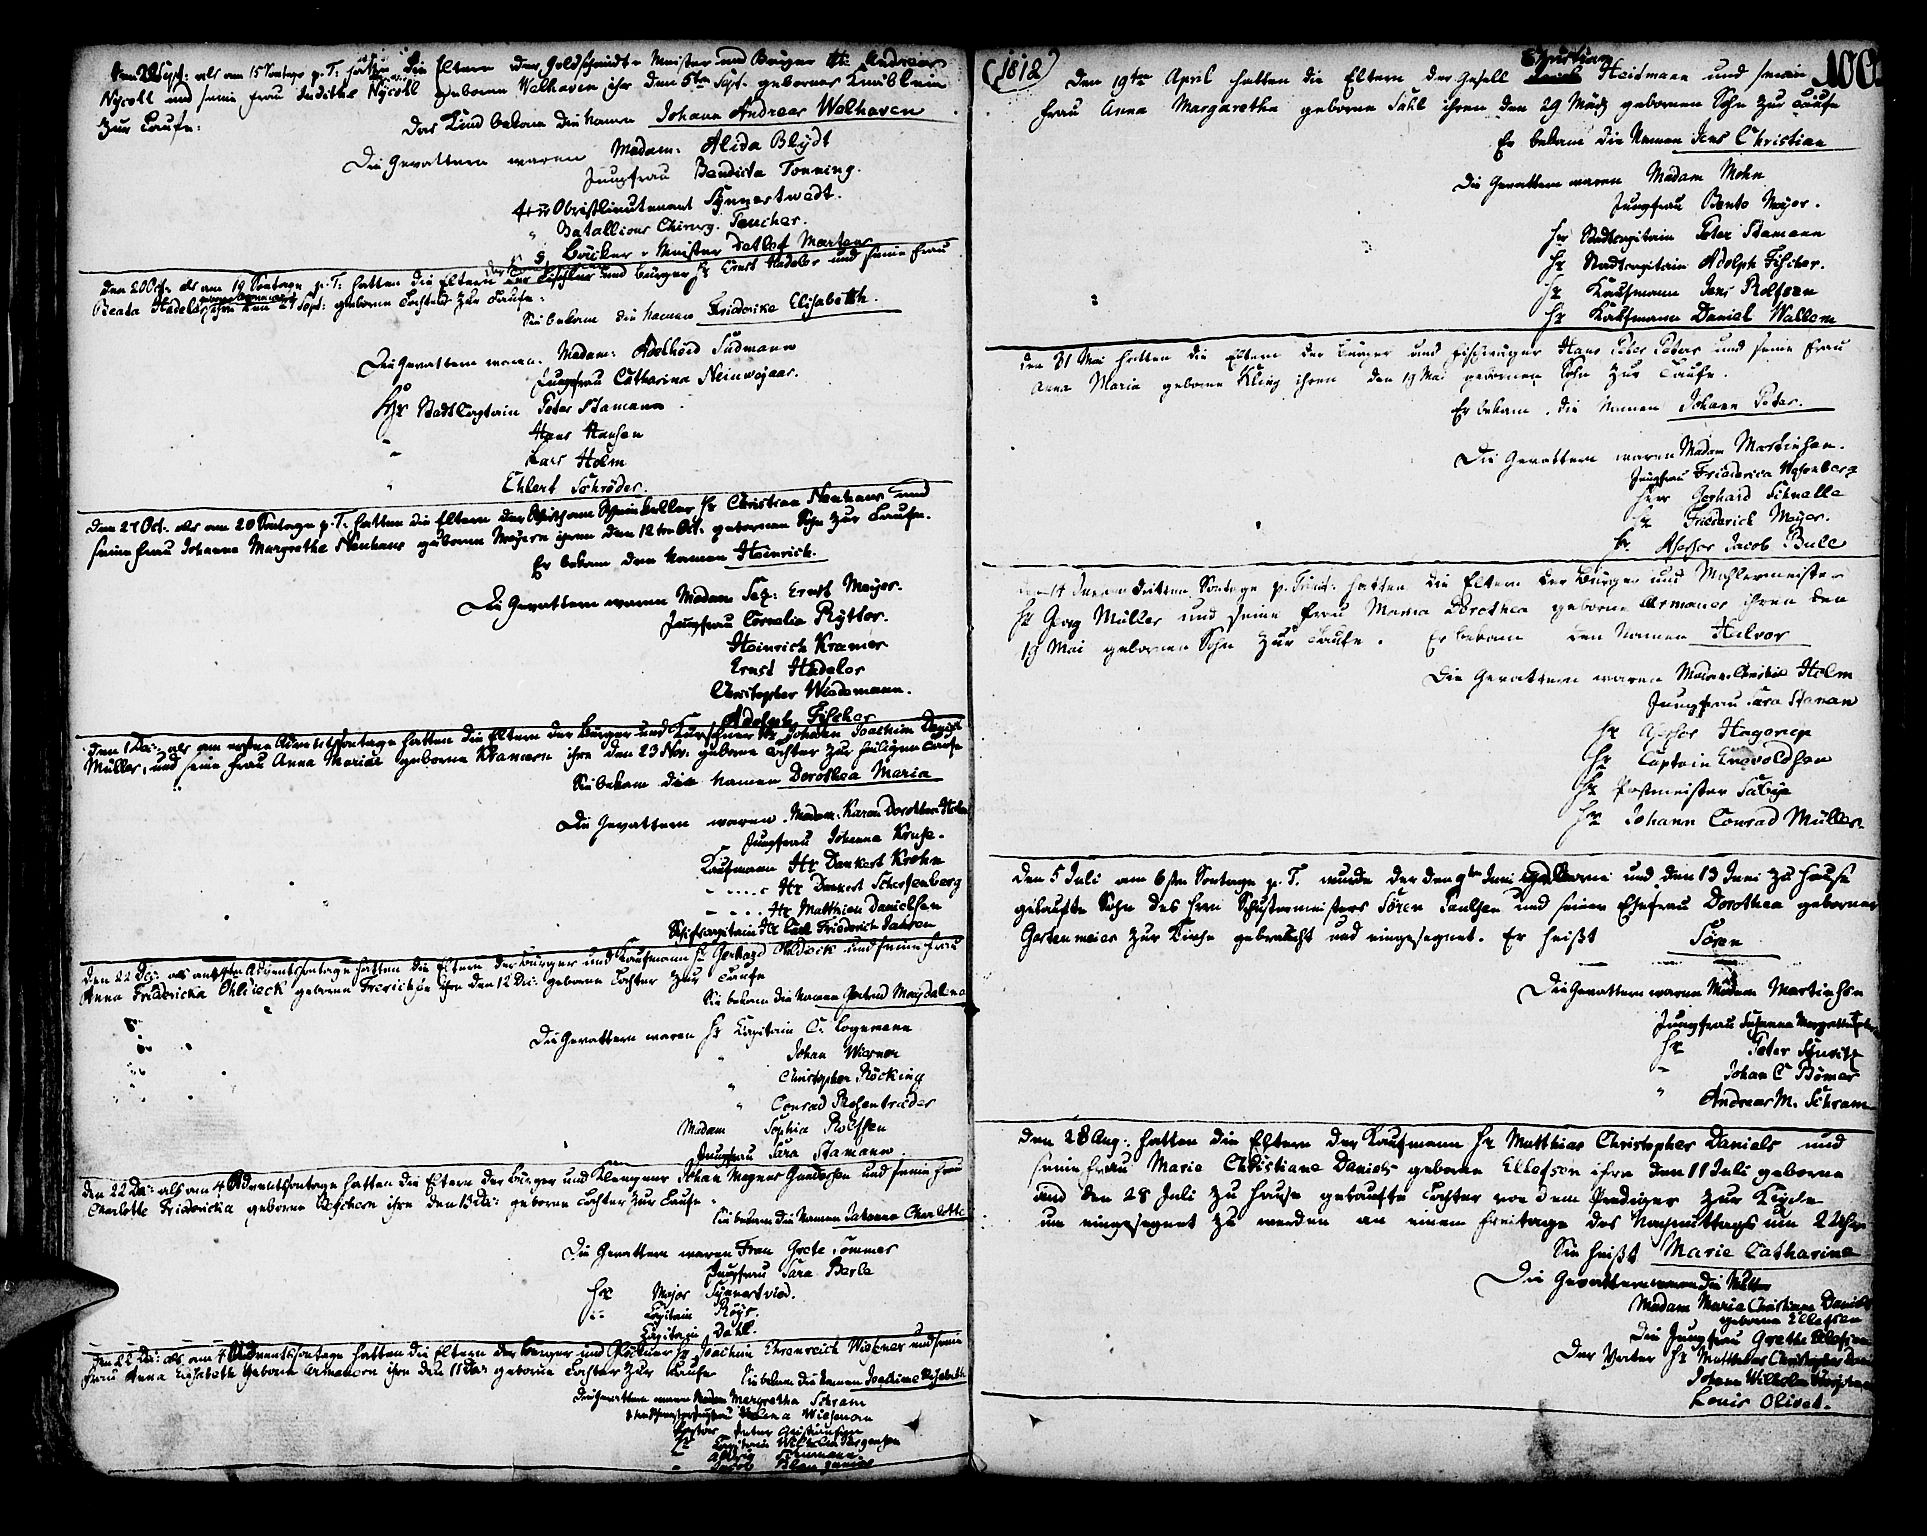 den 22 Sept: als am 15 Sontage p. T: hatten die Eltern der Goldschmidt Meister und Bürger Hr. Andreas
Nycoll und seine Frau Judithe Nycoll geborne Welhaven ihr den 5ten Sept. gebornes Knäblein
zur Taufe:
Das Kind bekam die Namen Johann Andreas Welhaven
Die Gevattern waren Madam: Alida Blydt
Jungfrau Bendicta Tonning.
Herr Obristlieutenant Synnestwedt.
" Batallions Chirurg. Teucher.
" Bäcker-Meister Detlof Martens
den 20 Oct: als am 19 Sontage p: T: hatten die Eltern der Tischler und Bürger Hr Ernst Hadeler und seine Frau
Beata Hadeler ihre den 27 Sept: geborne Tochter zur Taufe:
Sie bekam die Namen Friederike Elisabeth.
Die Gevattern waren. Madam: Adelheid Südmann
Jungfrau Catharina Meinwegaar.
Hr Stadt Captain Peter Stamann
" Hans Hansen
" Lars Holm
Ehlert Schröder.
den 27 Oct. als am 20 Sontage p. T: hatten die Eltern der Wirth am Weinkeller Hr Christian Nenhaus und
seine Frau Johanna Margrethe Nenhaus geborne Meyern ihren den 12ten Oct: gebornen Sohn zur Taufe.
Er bekam den Namen Heinrich.
Die Gevattern waren Madam Sel: Ernst Meyer.
Jungfrau Cornelia Rytter.
Heinrich Kramer
Ernst Hadeler
Christopher Wiedemann.
Adolph Fischer
den 1 Dec: als am ersten Adventssontage hatten die Eltern der Bürger und Kürschner Hr Johann Joachim Daniel
Müller, und seine Frau Anna Maria geborne Kramern ihre den 23 Nov. geborne Tochter zur heiligen Taufe
Sie bekam die Namen Dorothea Maria
Die Gevattern waren. Madam: Karen Dorothea Holm
Jungfrau Johanna Kruse.
Kaufmann Hr Dankert Krohn
" Hr Dankert Scherfenberg
" Hr Matthias Danielsen
Schifscapitain Hr Carl Friederich Jansen
den 22 Dec: als am 4ten Adventssontage hatten die Eltern der Bürger und Kaufmann Hr Gerhard Ohldieck und seine Frau
Anna Fridericka Ohldieck geborne Frerichsen ihre den 12 Dec: geborne Tochter zur Taufe
Sie bekam die Namen Gertrud Magdalena
Die Gevattern waren Hr Capitain C. Logemann
" Johan Wierner
" Christopher Röcking
" Conrad Rosentræder
Madam Sophia Rolfsen
Jungfrau Sara Stamann.
den 22 Dec: als am 4 Adventssontage hatten die Eltern der Bürger und Klempner Johan Magnus Gundersen und seine Frau
Charlotte Fridericia geborne ihre den 13 Dec: geborne Tochter zur Taufe
Sie bekam die Namen Johanna Charlotte
Die Gevattern waren Frau Grete Sommer
Jungfrau Sara Berle
Hr Major Synnestvied.
" Capitain Röys.
Capitain Dahl.
den 22 Dec: als am 4 Adventssontage hatten die Eltern der Bürger und Glockner Hr Joachim Ehrenreich Wiesner und seine
Frau Anna Elisabeth geborne Armauern ihre den 11 Dec: geborne Tochter zur Taufe
Sie bekam die Namen Joachime Elisabeth
Die Gevattern waren Madam Margretha Schram
Jungfrau Helena Wiesman
Pastor
Hr Capitain Wilhelm Jürgensen
(1812)
100.
Christian
Den 19ten April hatten die Eltern der Gesell Heidmann und seine
Frau Anna Margaretha geborne Tuhl ihren den 29 März gebornen Sohn zur Taufe
Er bekam die Namen Jens Christian
Die Gevattern waren Madam Mohn
Jungfrau Bente Meyer.
Hr Stadtcapitain Peter Stamann
Hr Stadtcapitain Adolph Fischer.
Hr Kaufmann Jens Rolfsen
Hr Kaufmann Daniel Wallem
den 31 Mai hatten die Eltern der Bürger und Hans Peter Peters und seine Frau
Anna Maria geborne Kling ihren den 19 Mai gebornen Sohn zur Taufe.
Er bekam die Namen Johann Peter.
Die Gevattern waren Madam Martinsen.
Jungfrau Friederica Wesenberg
Herr Gerhard Schnelle
Hr Friederich Meyer.
Hr. Assessor Jacob Bull
den 14 Jun am dritten Sontage p. Trinit: hatten die Eltern der Bürger und Mahlermeister
Hr Georg Müller und seine Frau Maria Dorothea geborne Armauer ihren den
19 Mai gebornen Sohn zur Taufe. Er bekam den Namen Halvor
Die Gevattern waren Madam Christin Holm
Jungfrau Sara Staman
Hr Assessor Hagerup
Hr Captain Engvoldsen
Hr Postmeister Tabye
Hr Johann Conrad Müller.
den 5 Juli am 6ten Sontage p. T. wurde der den 9ten Juni geborne und den 13 Juni zu Hause
getaufte Sohn des Herrn Schustermeisters Sören Paulsen und seiner Ehefrau Dorothea geborner
Gartenmeier zur Kirche gebracht und eingesegnet. Er heißt Sören
Die Gevattern waren Madam Martinsen
Jungfrau Susanna Margretha
Hr Peter
" Johan C Bömer
" Andreas M. Schram
den 28 Aug: hatten die Eltern der Kaufmann Hr Matthias Christopher Daniels und
seine Frau Marie Christiane Daniels geborne Ellefsen ihre den 11 Juli geborne
und den 28 Juli zu Hause getaufte Tochter von dem Prediger zur Kirche
um eingesegnet zu werden an einem Freitage des Nachmittags um 2 Uhr
Sie heißt Marie Catharine
Die Gevattern waren die Mutter
Madam Maria Christiane Daniels
geborne Ellefsen
Die Jungfrau Grethe Ellefsen
Der Vater Hr Matthias Christopher Daniels
Johan Wilhelm
Louis Olivet.